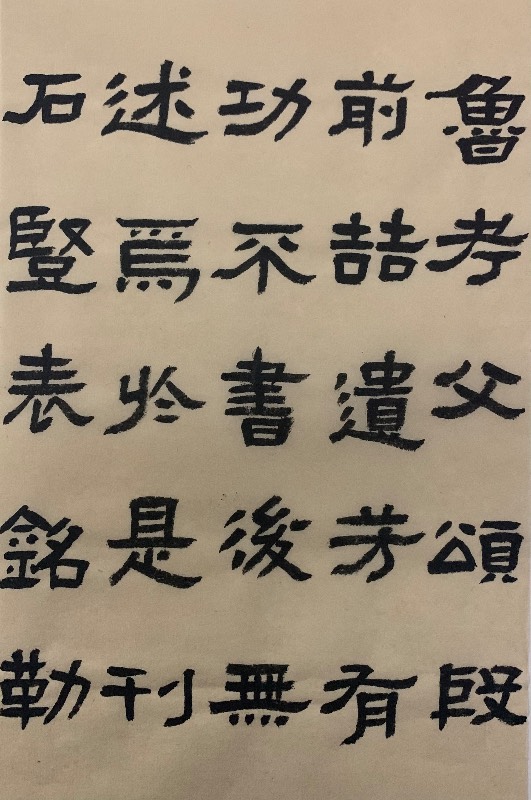 魯考父頌殷
前喆遺芳有
功不書後無
述焉於是刊
石豎表銘勒